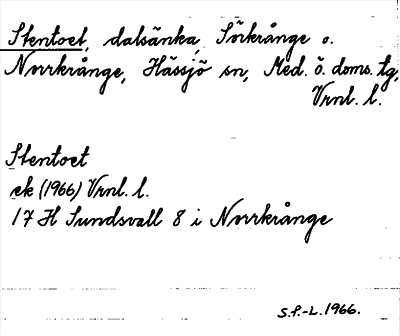 Stentoet, dalsänka, Sörkrånge o.
Norrkrånge, Hässjö sn, Med. ö. doms. tg,
Vrnl. l.
Stentoet
ek (1966) Vrnl. l.
17 H Sundsvall 8 i Norrkrånge
S.F.-L. 1966.